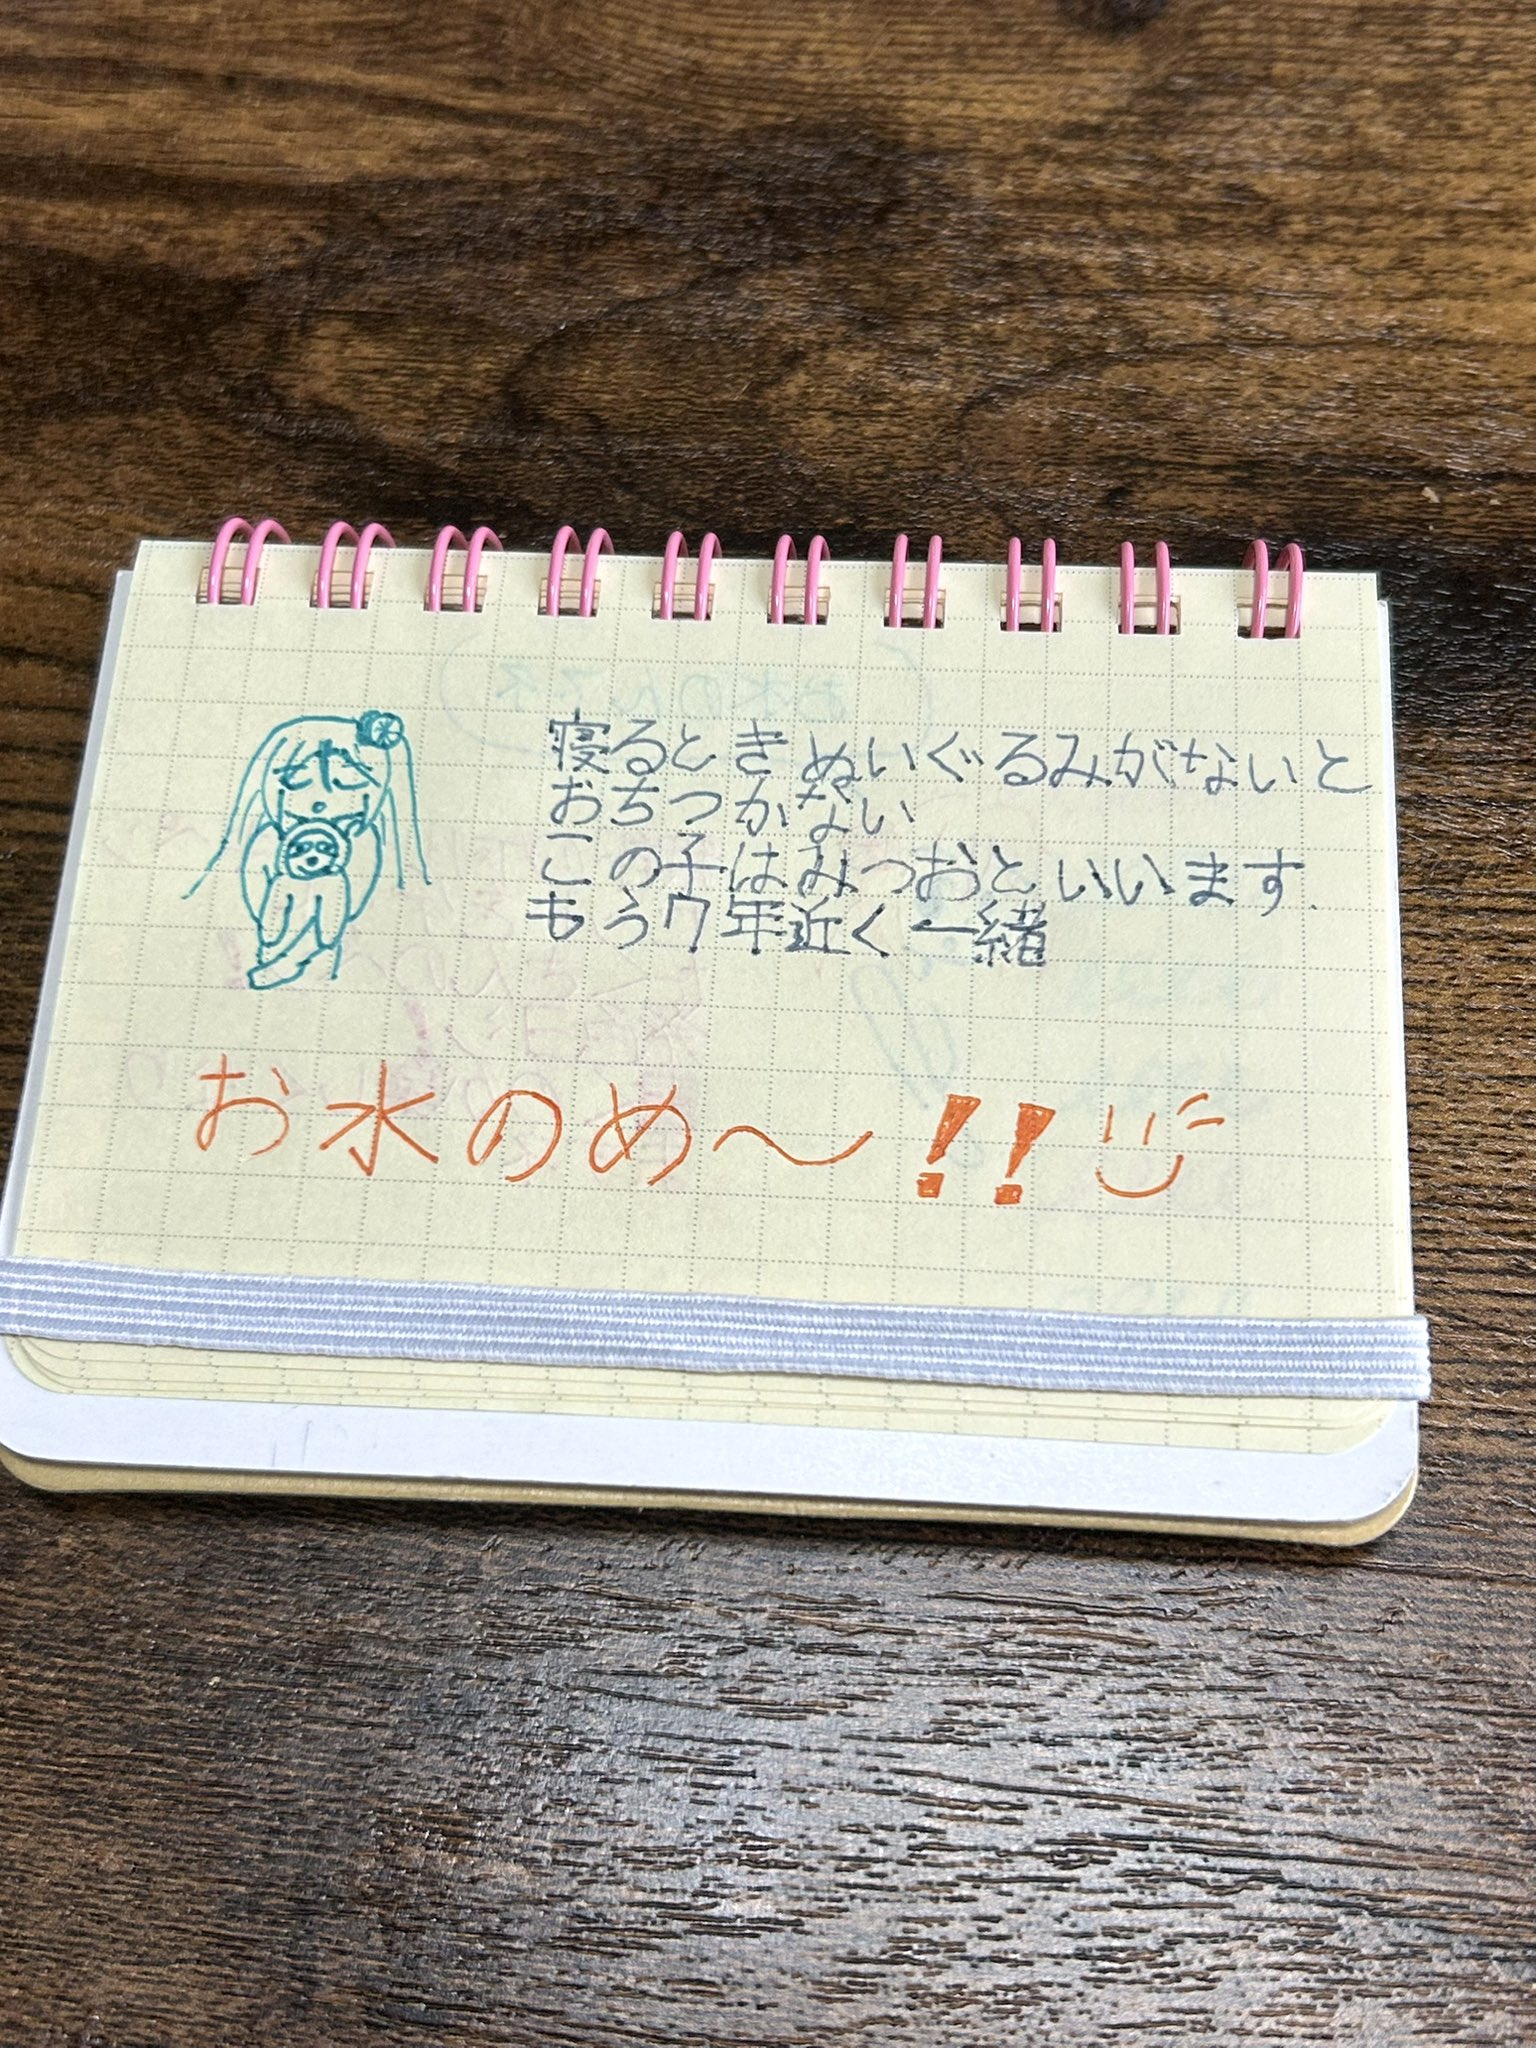 寝るときぬいぐるみがないと
おちつかない
この子はみつおといいます.
もう7年近く一緒
お水のめ〜!!